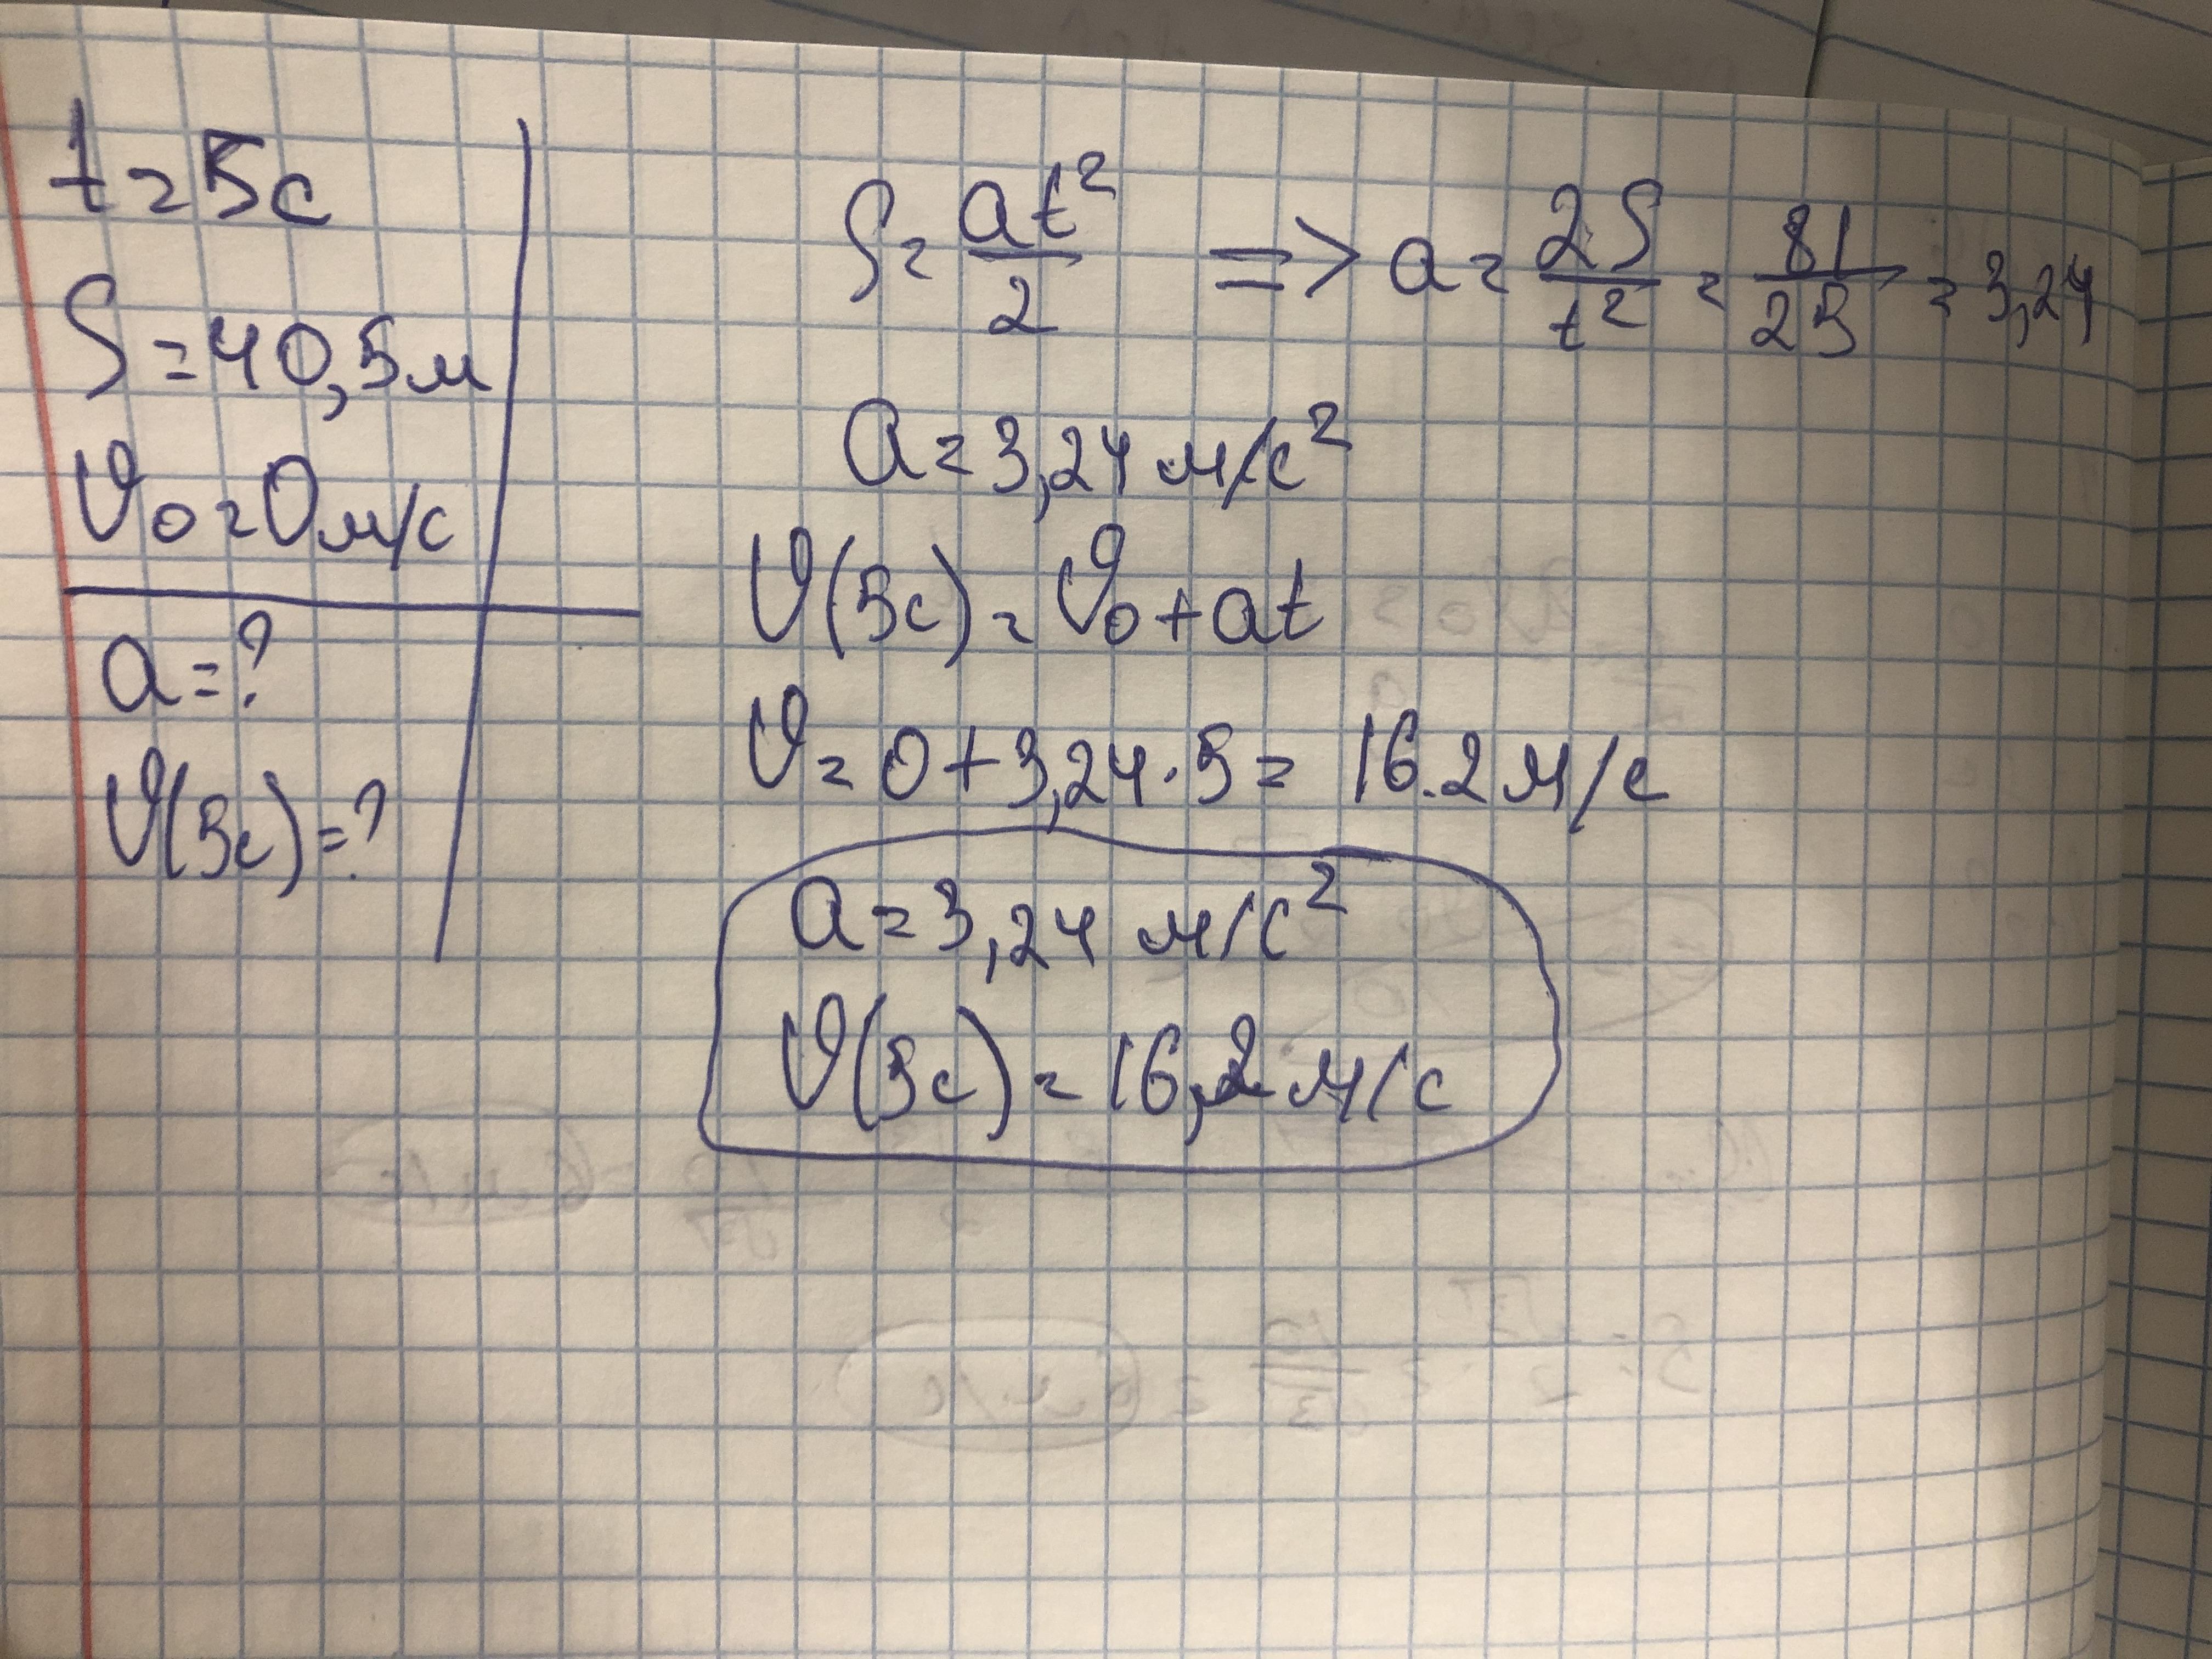 t = 5с
S = 40,5м
υ₀ = 0м/с
a = ?
υ(5с) = ?
S = at²/2 => a = 2S/t² = 81/25 = 3,24
a = 3,24 м/с²
υ(5с) = υ₀ + at
υ = 0 + 3,24 · 5 = 16.2 м/с
a = 3,24 м/с²
υ(5с) = 16,2 м/с